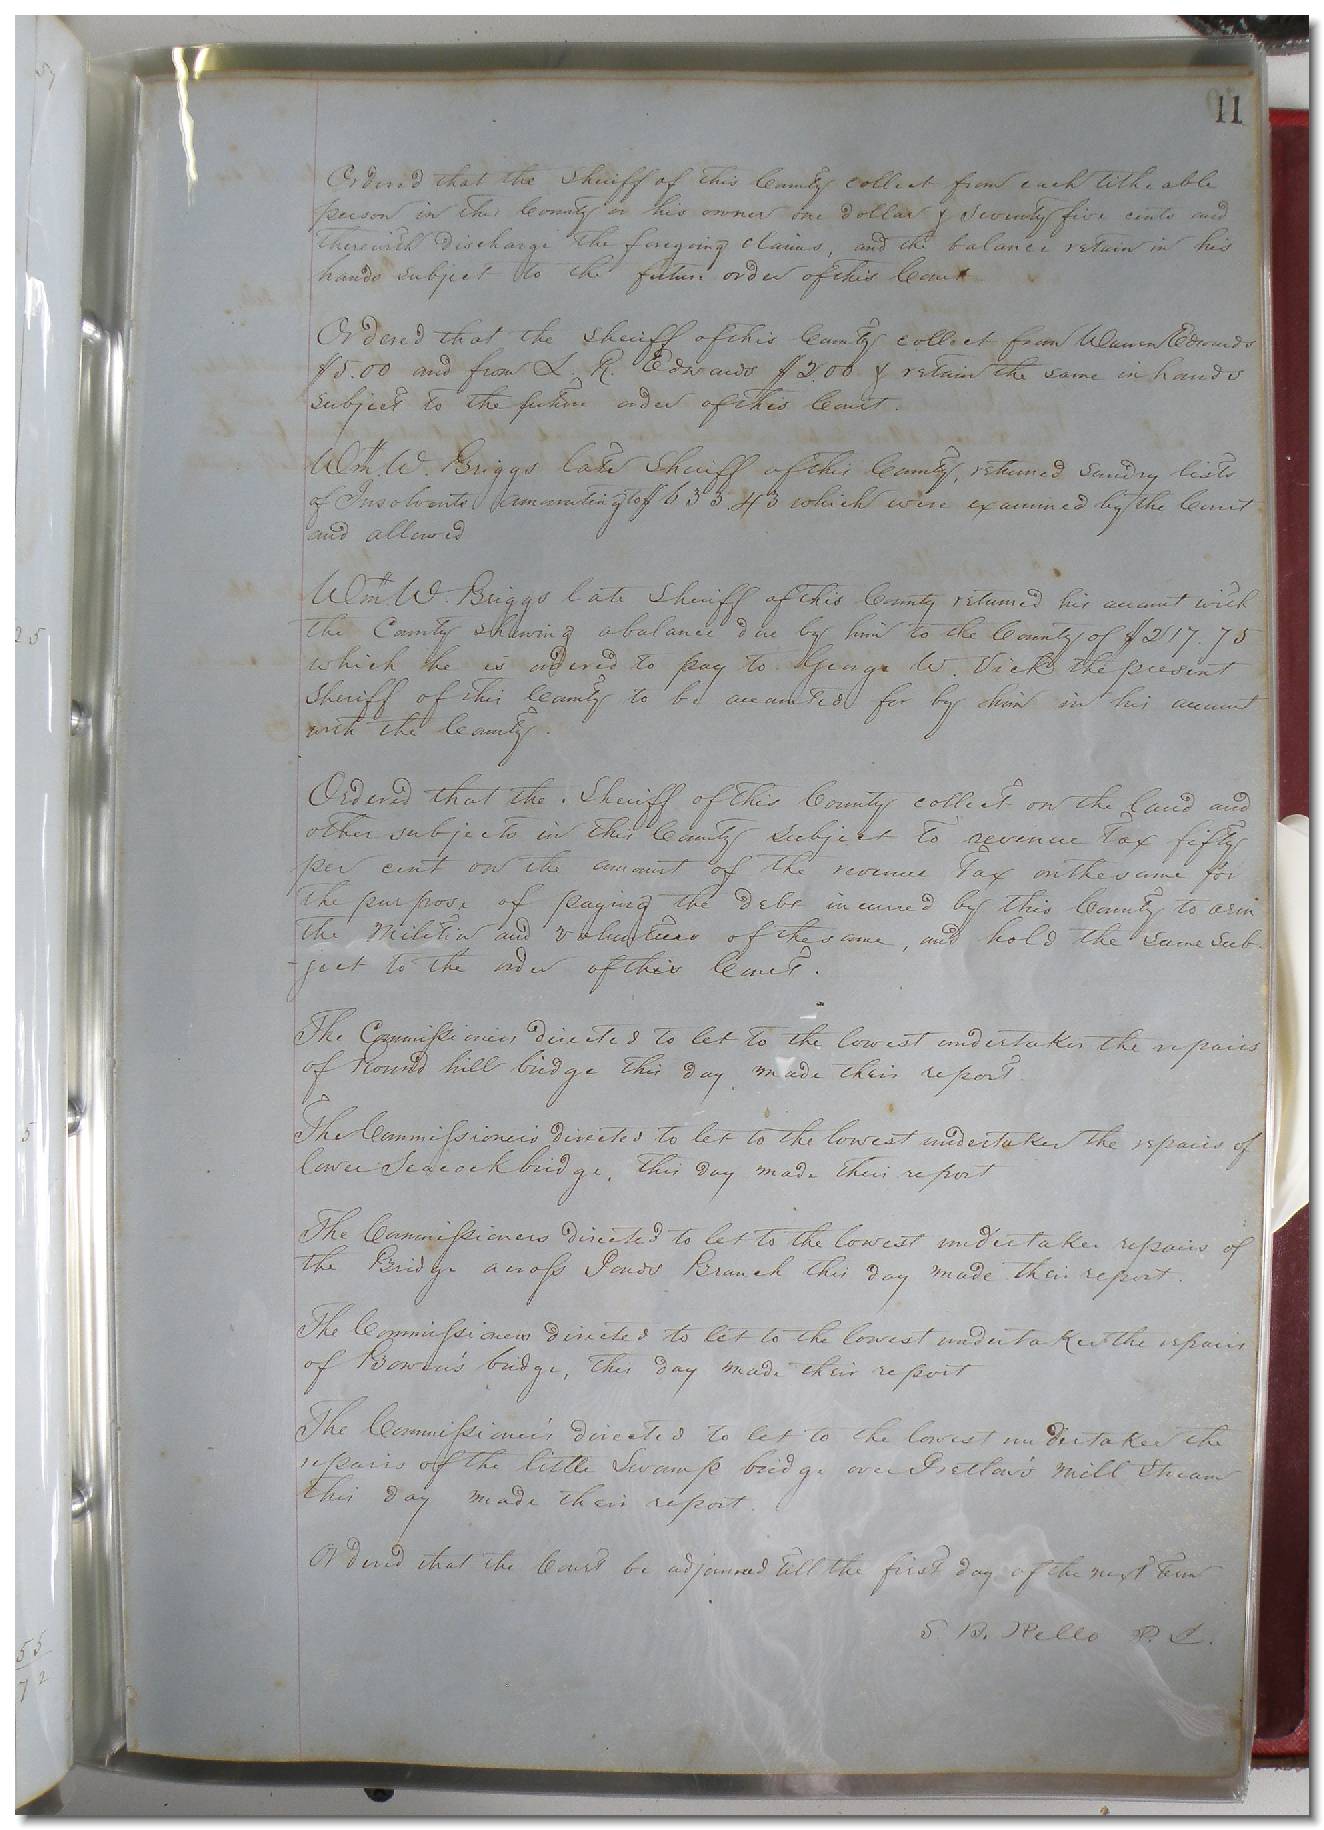 11
Ordered that the Sheriff of this County collect from each titheable
person in this County or his owner one dollar & seventy five cents and
therewith discharge the foregoing claims, and the balance retain in his
hands subject to the future order of this Court
Ordered that the Sheriff of this County collect from Warren Edwards
$5.00 and from L. R. Edwards $2.00 & retain the same in hands
subject to the future order of this Court.
Wm W. Briggs late Sheriff of this County, returned sundry lists
of Insolvents amounting to $633.43 which were examined by the Court
and allowed
Wm W. Briggs late Sheriff of this County returned his account with
the County shewing a balance due by him to the County of $217.75
which he is ordered to pay to George W. Vick the present
Sheriff of this County to be accounted for by him in his account
with the County.
Ordered that the Sheriff of this County collect on the land and
other subjects in this County subject to revenue Tax fifty
per cent on the amount of the revenue Tax on the same for
the purpose of paying the debt incurred by this County to arm
the Militia and volunteers of the same, and hold the same sub-
-ject to the order of this Court.
The Commissioners directed to let to the lowest undertaker the repairs
of Round hill bridge this day made their report
The Commissioners directed to let to the lowest undertaker the repairs of
lower Seacock bridge, this day made their report
The Commissioners directed to let to the lowest undertaker repairs of
the Bridge across Jones Branch this day made their report.
The Commissioners directed to let to the lowest undertaker the repairs
of Bowen's bridge, this day made their report
The Commissioners directed to let to the lowest undertaker the
repairs of the little Swamp bridge over Pretlow's mill Stream
this day made their report.
Ordered that the Court be adjourned till the first day of the next Term
25
5
55
72